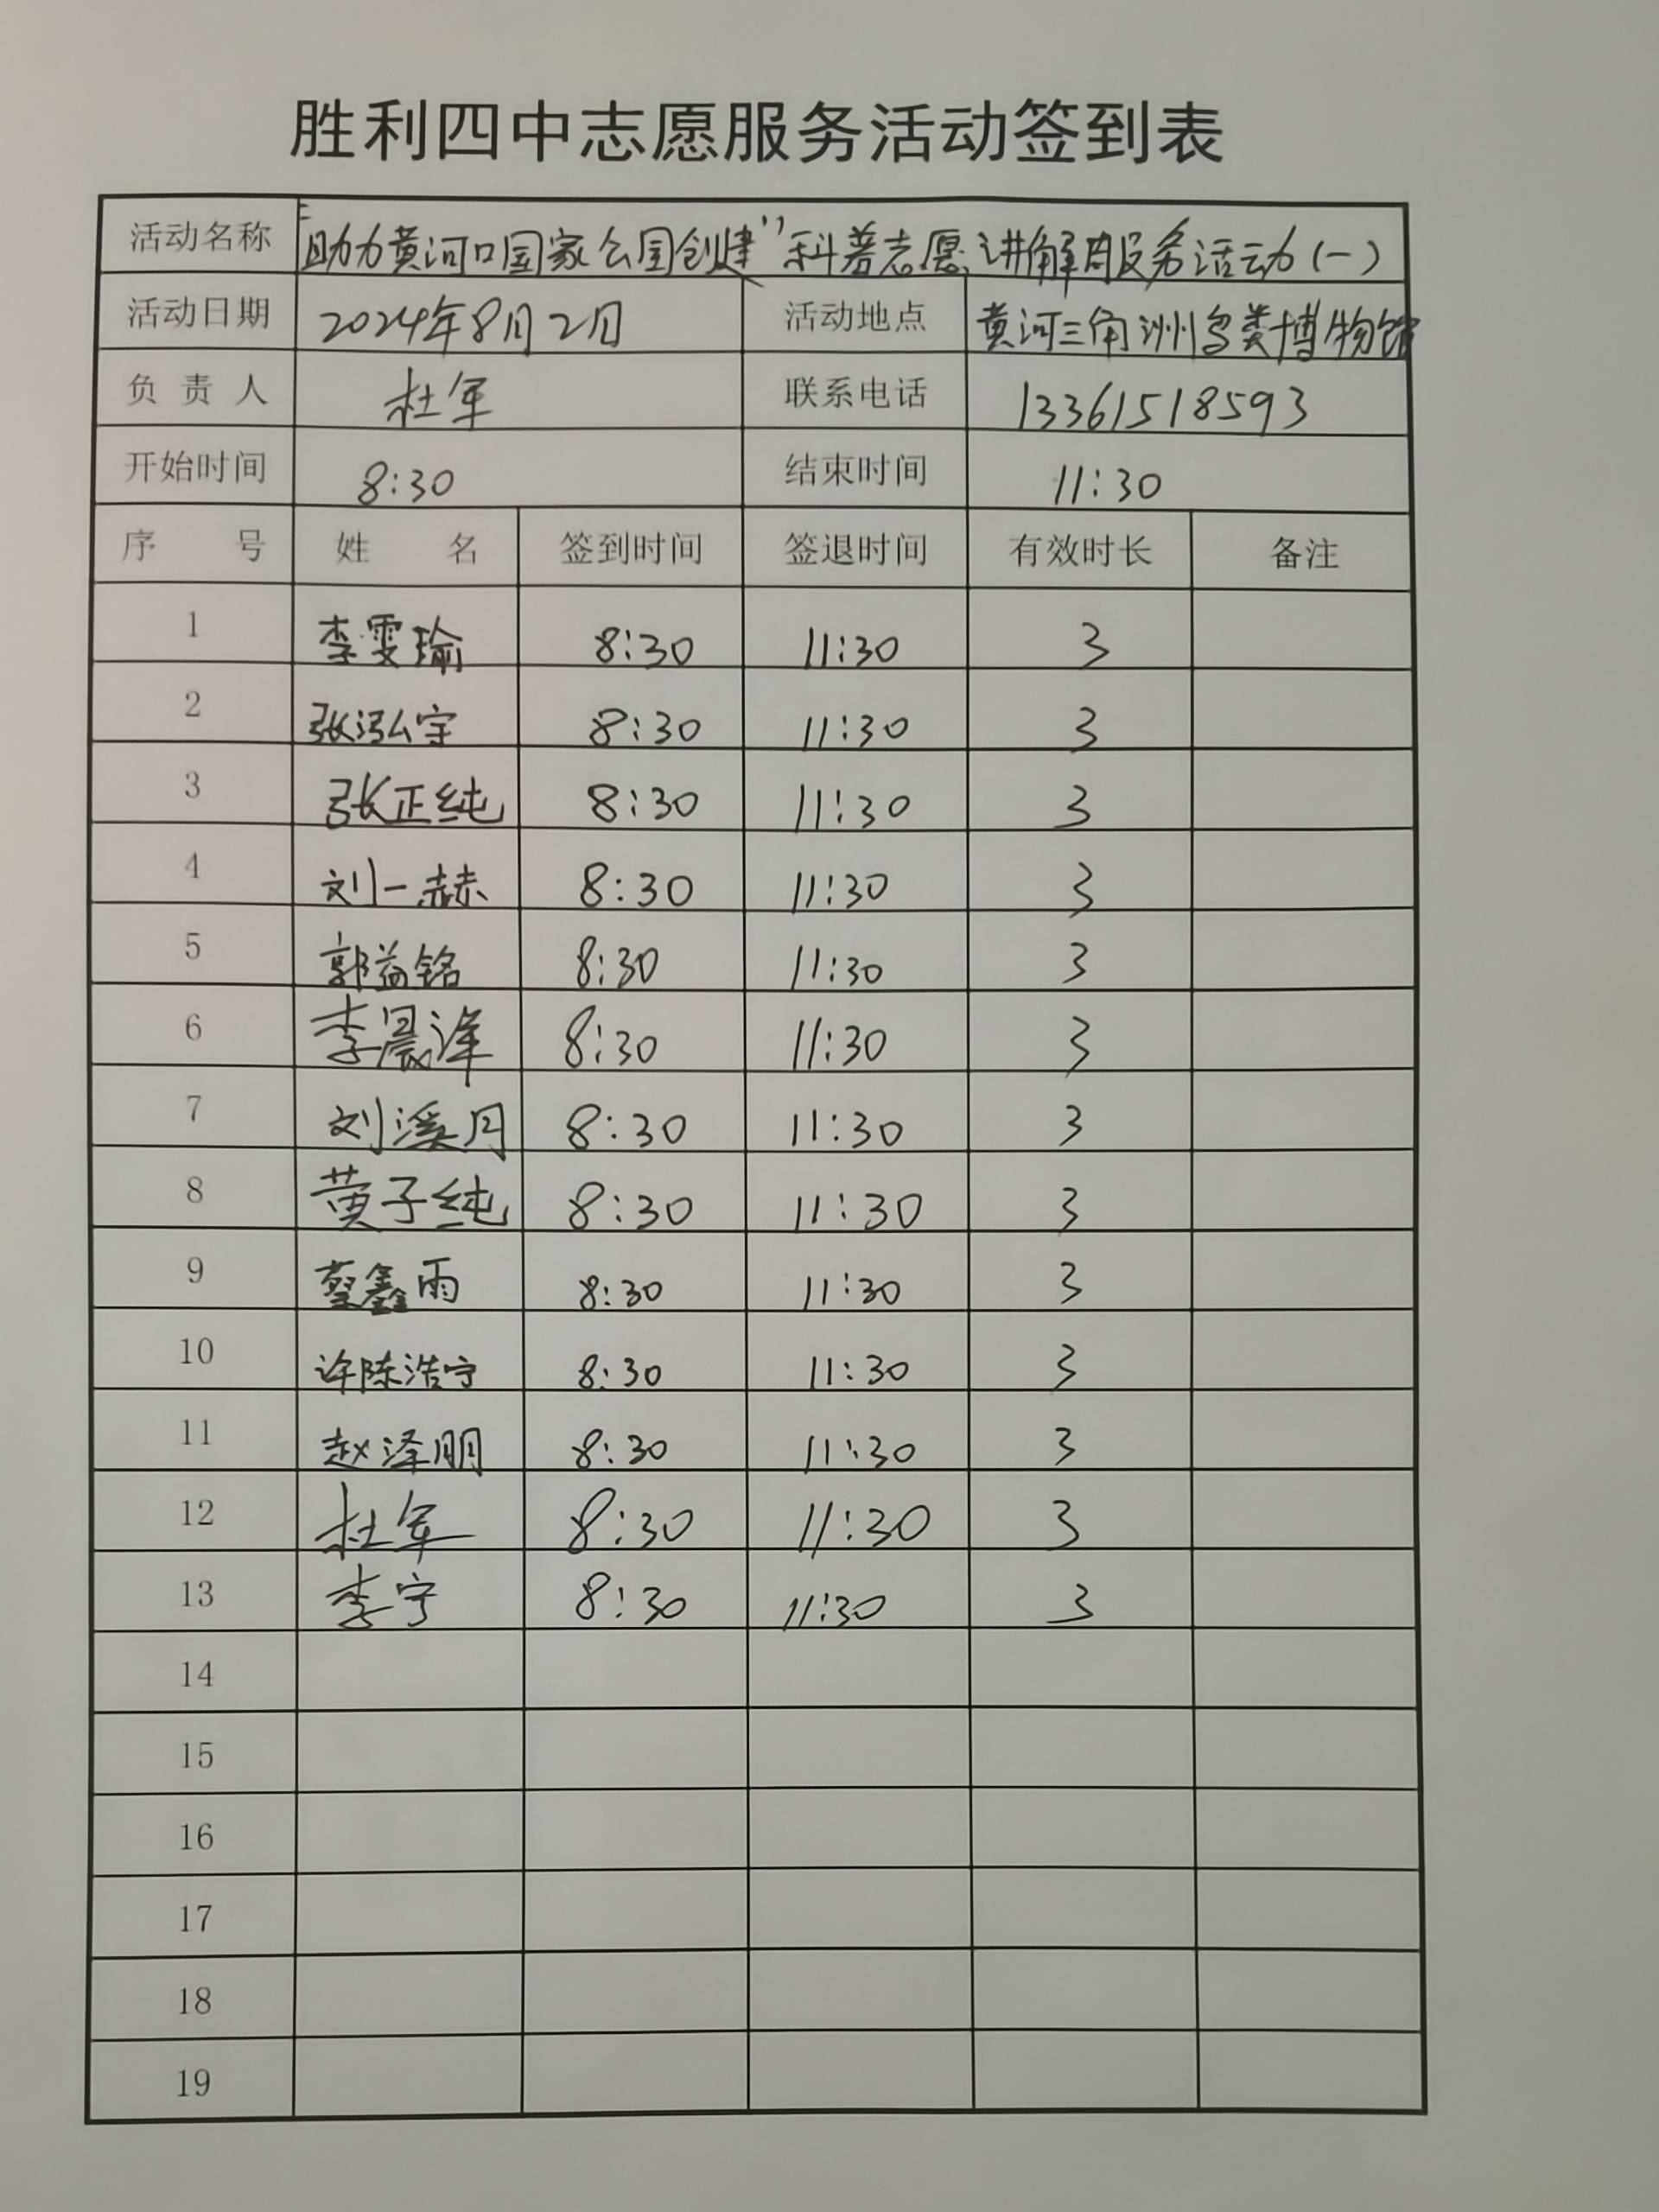 胜利四中志愿服务活动签到表
活动名称 “助力黄河口国家公园创建”科普志愿讲解服务活动(一)
活动日期 2024年8月2日 活动地点 黄河三角洲鸟类博物馆
负责人 杜军 联系电话 13361518593
开始时间 8:30 结束时间 11:30
序号 姓名 签到时间 签退时间 有效时长 备注
1 李雯瑜 8:30 11:30 3
2 张泓宇 8:30 11:30 3
3 张正纯 8:30 11:30 3
4 刘一赫 8:30 11:30 3
5 郭益铭 8:30 11:30 3
6 李晨泽 8:30 11:30 3
7 刘溪月 8:30 11:30 3
8 黄子纯 8:30 11:30 3
9 蔡鑫雨 8:30 11:30 3
10 许陈浩宁 8:30 11:30 3
11 赵泽朋 8:30 11:30 3
12 杜军 8:30 11:30 3
13 李宁 8:30 11:30 3
14
15
16
17
18
19